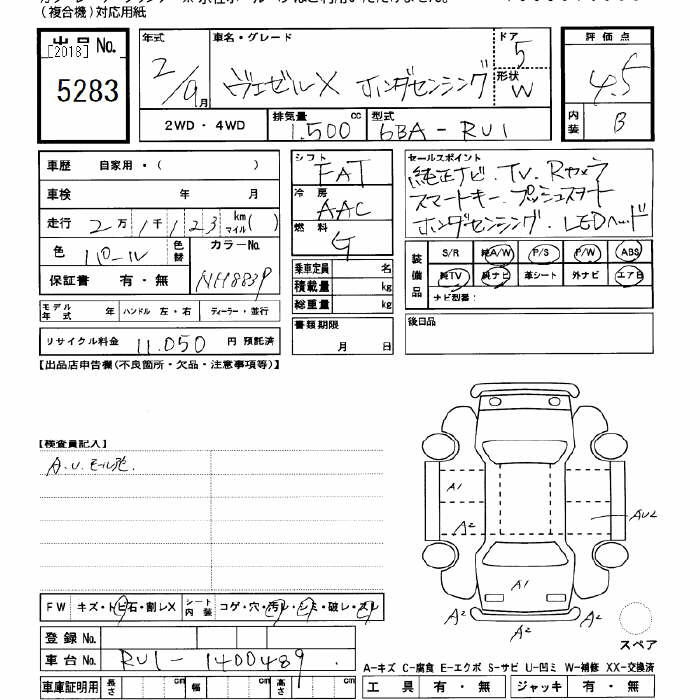 (複合機)対応用紙
出品No.
[2018]
5283
年式
2/9月
車名・グレード
ヴェゼルX ホンダセンシング
ドア
5
形状
W
2WD・4WD
排気量
1.500 cc
型式
6BA-RU1
評価点
4.5
内装
B
車歴 自家用・( )
車検 年 月
走行 2万1千123 km マイル( )
色 パール
色替
カラーNo.
NH883P
保証書 有・無
モデル年式 年 ハンドル 左・右 ディーラー・並行
リサイクル料金 11.050 円 預託済
シフト
FAT
冷房
AAC
燃料
G
乗車定員 名
積載量 kg
総重量 kg
書類期限
月 日
セールスポイント
純正ナビ.TV.Rカメラ
スマートキー.プッシュスタート
ホンダセンシング.LEDヘッド
装備品
S/R 純A/W P/S P/W ABS
純TV 純ナビ 革シート 外ナビ エアB
ナビ型番:
後日品
【出品店申告欄(不良箇所・欠品・注意事項等)】
【検査員記入】
A.U.モール
A1
A2
AU2
A1
A2
A2
A2
スペア
FW キズ・トビ石・割レX
シート内装 コゲ・穴・汚レ・シミ・破レ・スレ
登録No.
車台No. RU1-1400489
車庫証明用 長さ cm 幅 cm 高さ cm
A-キズ C-腐食 E-エクボ S-サビ U-凹ミ W-補修 XX-交換済
工具 有・無 ジャッキ 有・無